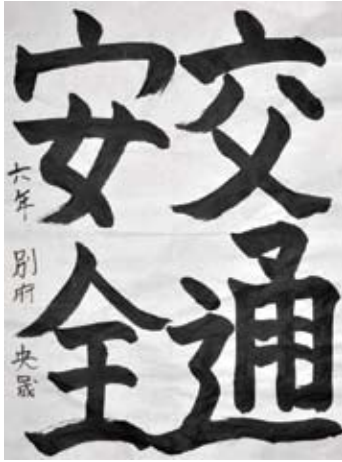 交通
安全
六年 別府 央晟